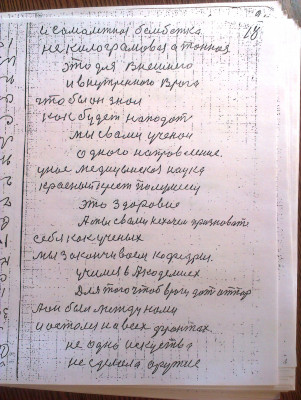 28
и самолётная бомбёжка
не килограмовая а тонная
это для внешнего
и внутренного врага
чтобы он знал
как будет нападат
мы с вами учение
одного направление.
иное медицинская наука
красный крест полумесец
это здоровие
А мы с вами хочем празновать
себя как ученых
мы закончиваем кафедри.
учимся в Академиех
Для того чтоб врагу дат отпор
Аон был между нами
и остался на всех фронтах
не одно искуства
не сделала оружие